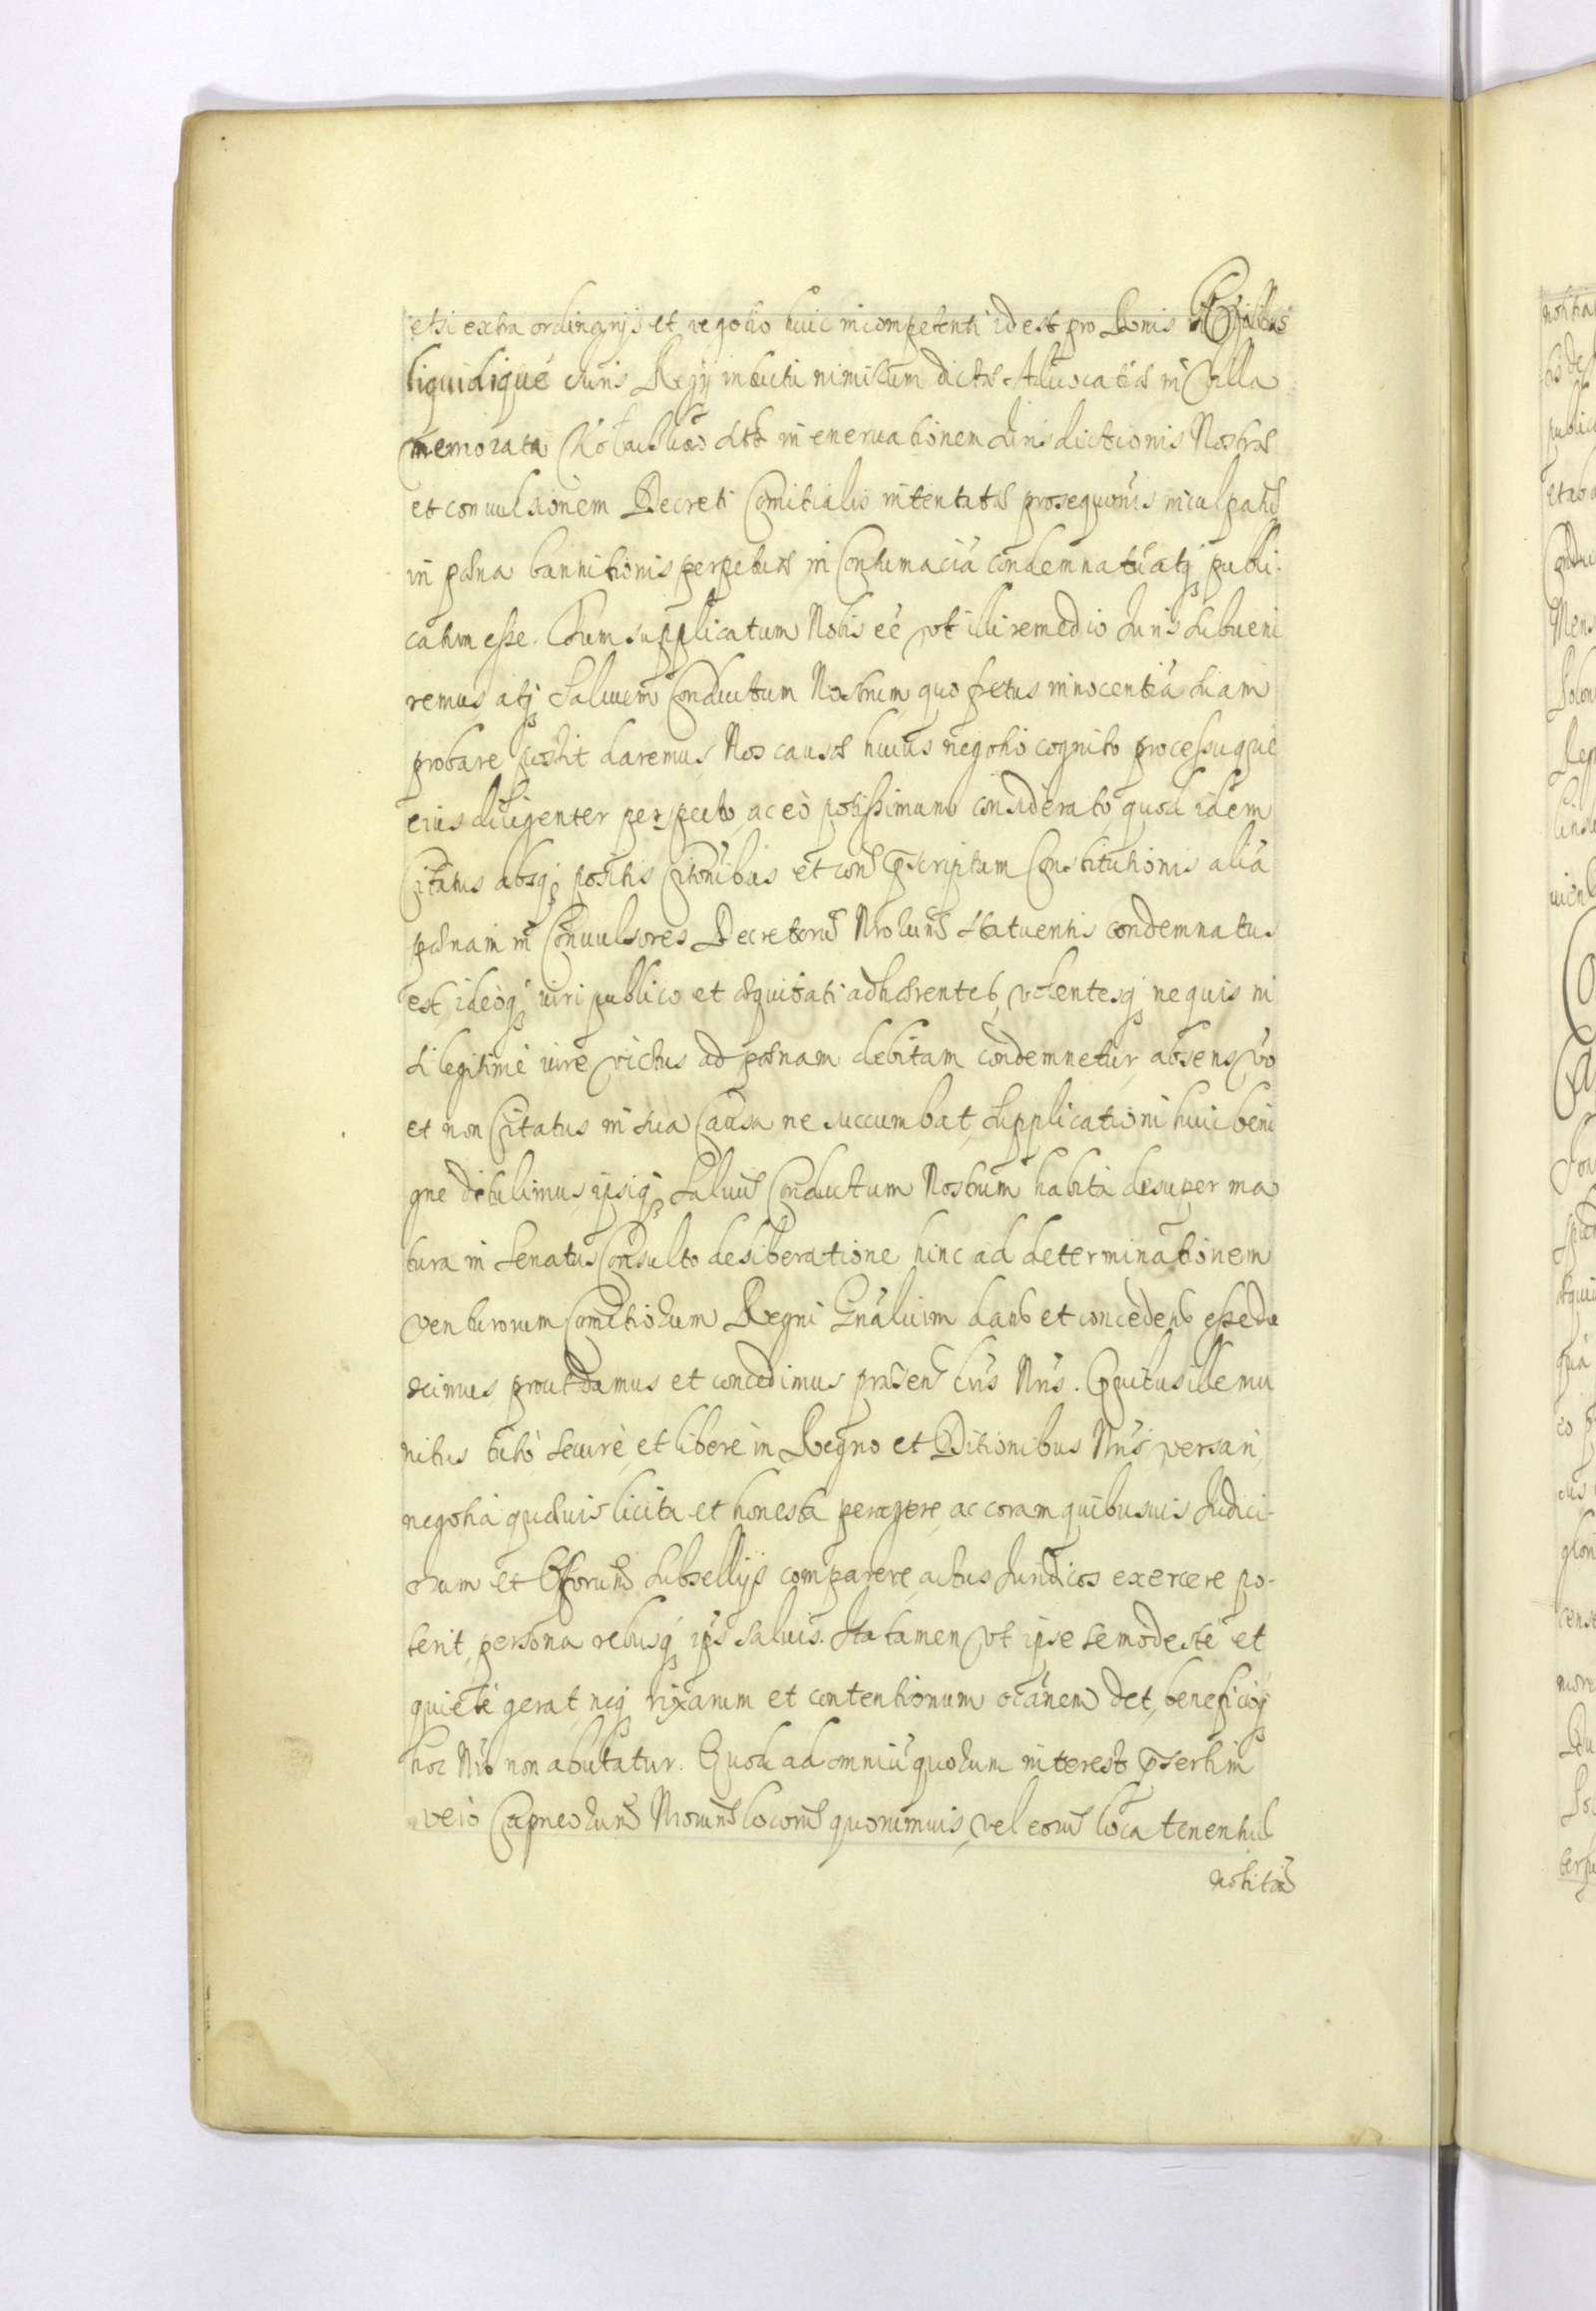 etsi extra ordinarijs et negotio huic incompetenti id est pro Bonis
liquidique Juris Regij indicti nimirum dictæ Aduocatiæ in Villa
memorata in eneruationem Jurisdictionis Nostræ
et conuulsionem Decreti Comitialis intentatæ prosequõnis inculpatũ
in pœna bannitionis perpetuæ in Contumaciã condemnatũ atq publi-
catum esse. Cum supplicatum Nobis eẽ vt illi remedio Juris subueni
remus atq Saluum Conductum Nostrum quo fretus innocentiã suam
probare possit daremus Nos causæ huius negotio cognito processuque
eius diligenter perspecto, ac eò potissimum considerato, quod idem
Citatus absq positis Citõnibus et cont~ pscriptum Constitutionis aliã
pœnam in Conuulsores Decretorũ Nrorum statuentis condemnatus
est, ideoq iuri publico et æquitati adhærentes, volentesq ne quis ni
si legitimè iure victus ad pœnam debitam condemnetur, absens vo
et non Citatus in sua Causa ne succumbat, supplicationi huic beni
gne detulimus, ipsiq Saluũ Conductum Nostrum habita desuper ma
tura in Senatus Consulto deliberatione hinc ad determinationem
venturorum Comitiorum Regni Gnãlium danð et concedenð esse du
ximus, prout damus et concedimus præsenð lr̃is Nr̃is. Quitus ille mu
nitus tutò, securè, et liberè in Regno et Ditionibus Nr̃is versari,
negotia quæuis licita et honesta peragere, ac coram quibusuis Judici-
orum et Officiorum Subsellijs comparere, actus Juridicos exercere po-
terit, persona rebusq ipsis saluis. Ita tamen vt ipse se modestè et
quietè gerat, neq rixarum et contentionum occãnem det, beneficioq
hoc Nro non abutatur. Quod ad omniũ quorum interest pr̃sertim
verò Capneorum Nrorum locorũ quorumuis, vel eorũ loca tenentiũ
notitiã